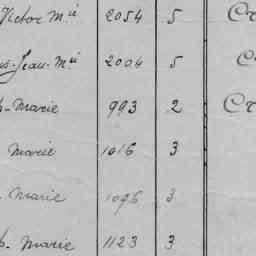 Victor Mie 2054 5
Jean-Mie 2004 5
Marie 993 2
Marie 1016 3
Marie 1096 3
Marie 1123 3